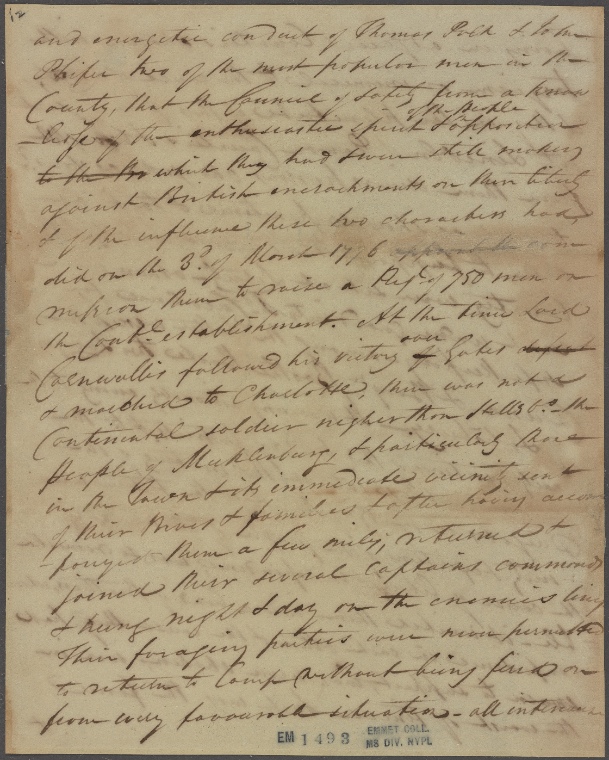 12
and energetic conduct of Thomas Polk & John
Phifer two of the most popular men in the
County, that the Council of Safety from a know
-ledge of the enthusiastic spirit & opposition
of the people
to the which they had & were still making
against British encroachments on their liberty
& of the influence these two characters had,
did on the 3.d of March 1776 appoint & com
mission them to raise a Regt. of 750 men on
the Contl. establishment. At the time Lord
Cornwallis followed his victory over Gates
& marched to Charlotte, there was not a
Continental soldier nigher than Hillsbo. the
people of Mecklenburg, & particularly those
in the Town & its immediate vicinity sent
off their Wives & families & after having accom
-panyed them a few miles, returned &
joined their several Captains commands
& hung night & day on the enemies lines
Their foraging parties were never permitted
to return to Camp without being fired on
from every favourable situation - all intercourse
EM 1493
EMMET COLL.
MS DIV. NYPL